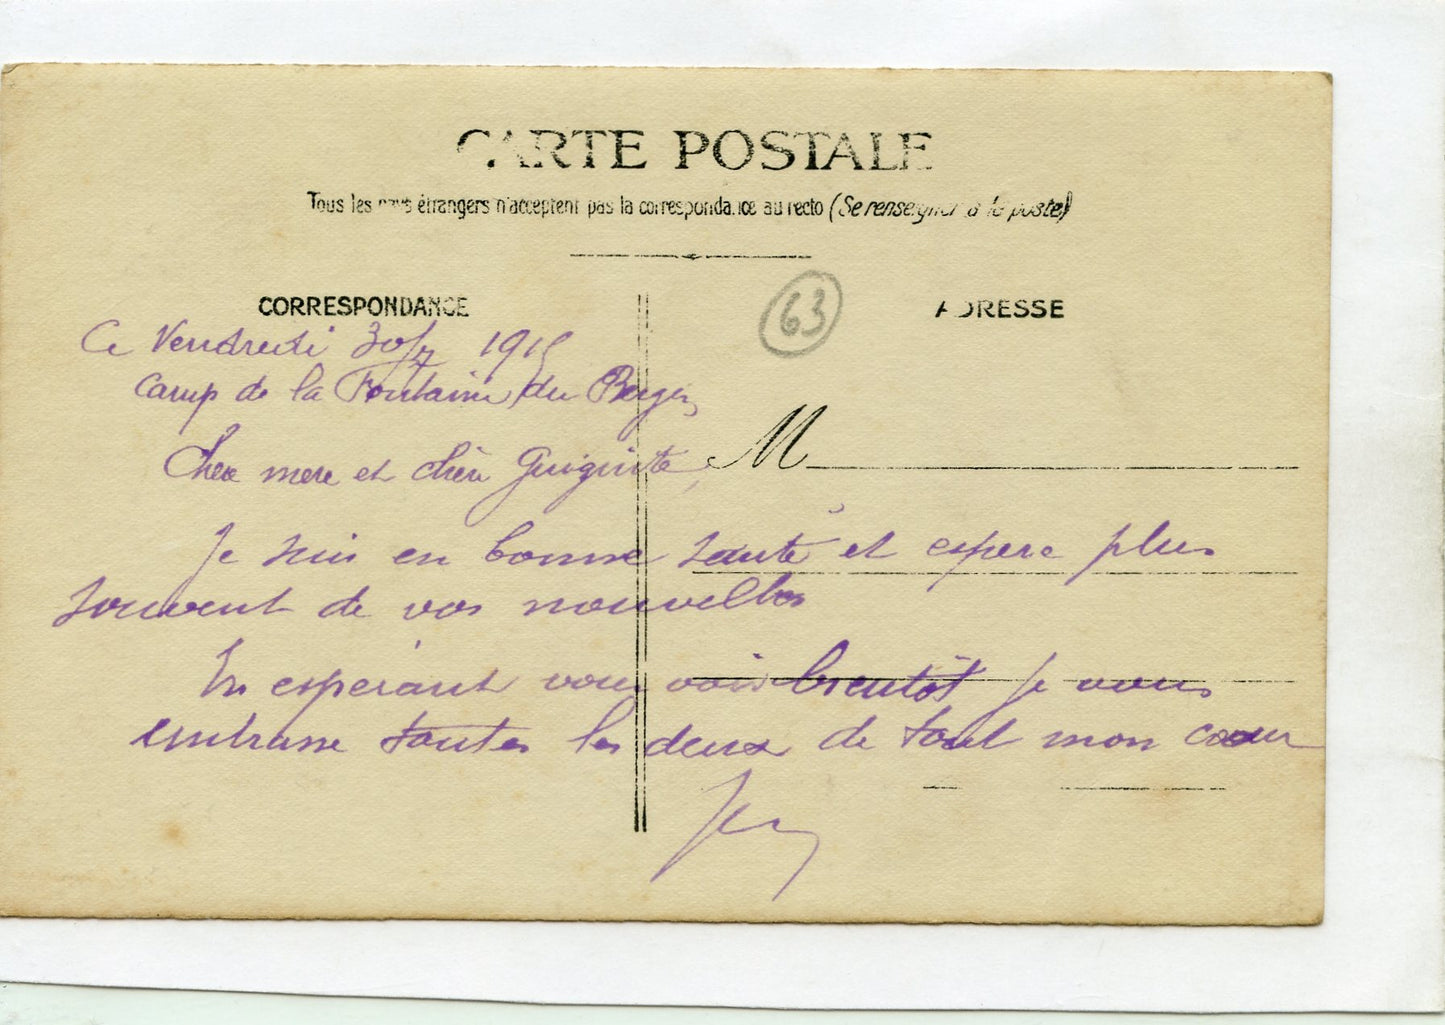 CARTE POSTALE
Tous les pays étrangers n'acceptent pas la correspondance au recto (Se renseigner à la poste)
CORRESPONDANCE
63
ADRESSE
Ce Vendredi 30/7 1915
Camp de la Fontaine du Berger
M
Chère mere et chère Guiguitte
Je suis en bonne santé et espere plus
souvent de vos nouvelles
En espérant vous voir bientôt Je vous
embrasse toutes les deux de tout mon cœur